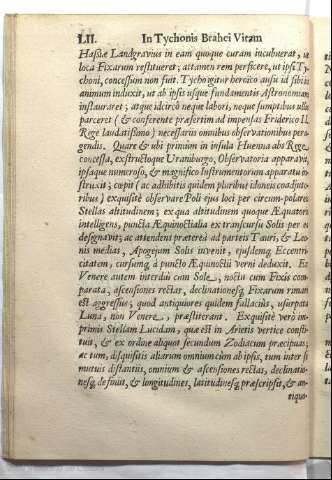 LII. In Tychonis Brahei Vitam
Hassiæ Landgravius in eam quoque curam incubuerat, ut
loca Fixarum restitueret; attamen rem perficere, ut ipsi Ty-
choni, concessum non fuit. Tycho igitur heroico ausu id sibi in
animum induxit, ut ab ipsis usque fundamentis Astronomiam
instauraret; atque idcircò neque labori, neque sumptibus ullis
parceret (& conferente præsertim ad impensas Friderico II.
Rege laudatissimo) necessariis omnibus observationibus pera-
gendis. Quare & ubi primùm in insula Huenna abs Rege
concessa, exstructoque Uraniburgo, Observatoria apparavit,
ipsaque numeroso, & magnifico Instrumentorum apparatu in-
struxit; cœpit (ac adhibitis quidem pluribus idoneis coadjuto-
ribus) exquisitè observare Poli ejus loci per circum-polares
Stellas altitudinem; ex qua altitudinem quoque Æquatoris
intelligens, puncta Æquinoctialia ex transcursu Solis per ea
designavit; ac attendens prætereà ad parteis Tauri, & Leo-
nis medias, Apogæum Solis invenit, ejusdemq; Eccentri-
citatem, cursumq; à puncto Æquinoctii verni deduxit. Ex
Venere autem interdiu cum Sole, noctu cum Fixis com-
parata, ascensiones rectas, declinationesq; Fixarum rimari
est aggressus; quod antiquiores quidem fallaciùs, usurpata
Luna, non Venere, præstiterant. Exquisitè verò im-
primis Stellam Lucidam, quæ est in Arietis vertice consti-
tuit, & ex ordine aliquot secundum Zodiacum præcipuas;
ac tum, disquisitis aliarum omnium cùm ab ipsis, tum inter se
mutuis distantiis, omnium & ascensiones rectas, declinatio-
nesq; definiit, & longitudines, latitudinesq; præscripsit, & an-
tiqua-